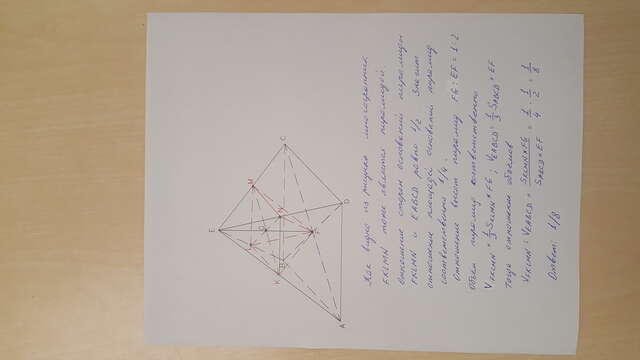 E
M
C
K
N
B
F
A
D
Как видно из рисунка многогранник
FKLMN тоже является пирамидой.
Отношение сторон оснований пирамиды
FKLMN и EABCD равно 1/2 Значит
отношение площадей оснований пирамид
соответственно 1/4.
Отношение высот пирамид FG:EF = 1:2
Объем пирамид соответственно
V FKLMN = 1/3 SKLMN * FG ; VEABCD = 1/3 SABCD * EF
Тогда отношение объемов
VFKLMN : VEABCD = SKLMN * FG / SABCD * EF = 1/4 · 1/2 = 1/8
Ответ: 1/8